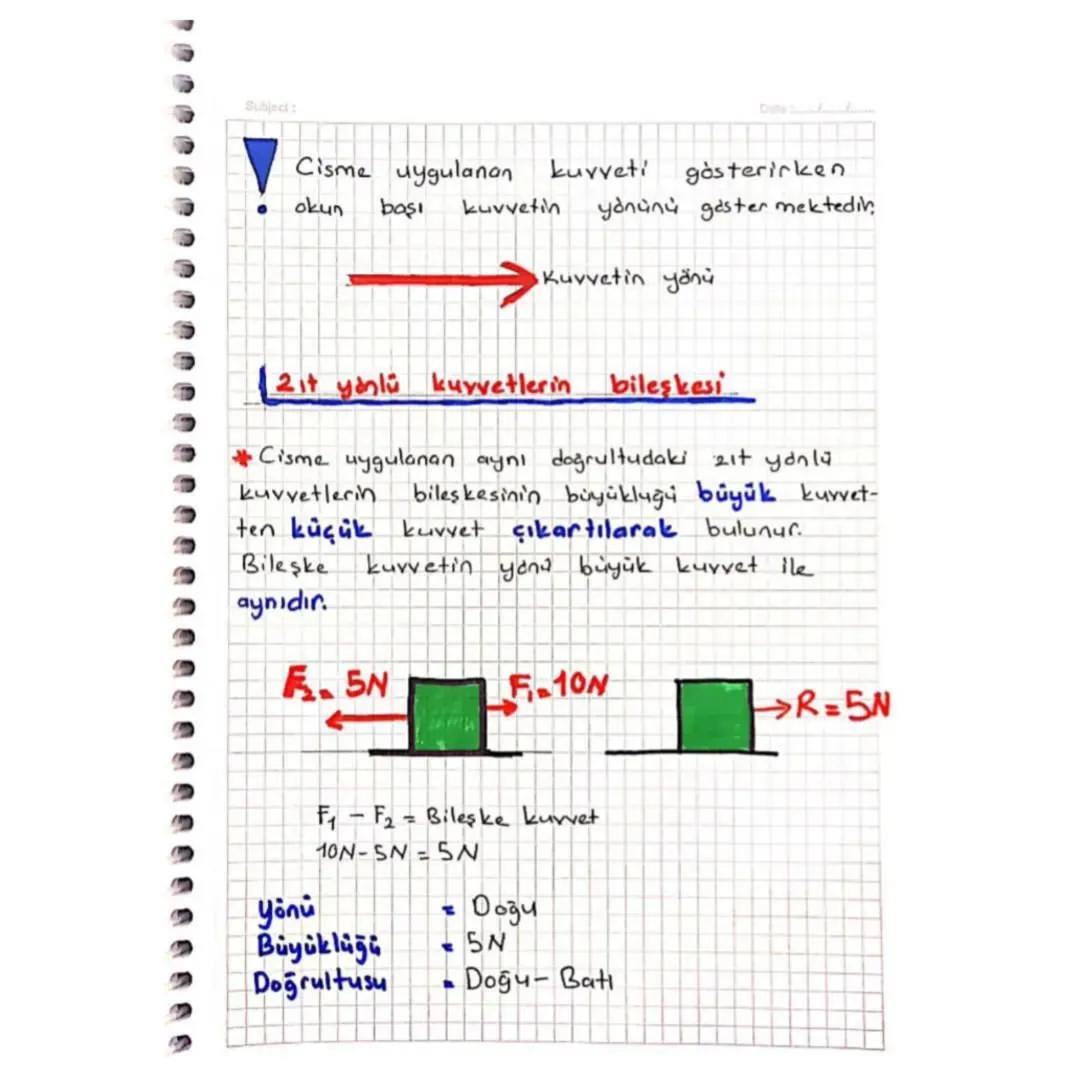 Subject :
Date :
Cisme uygulanan kuvveti gösterirken
okun başı kuvvetin yönünü göstermektedir.
Kuvvetin yönü
Zıt yönlü kuvvetlerin bileşkesi
* Cisme uygulanan aynı doğrultudaki zıt yönlü
kuvvetlerin bileşkesinin büyüklüğü büyük kuvvet-
ten küçük kuvvet çıkartılarak bulunur.
Bileşke kuvvetin yönü büyük kuvvet ile
aynıdır.
F₂ = 5N F₁ = 10N
R = 5N
F₁ - F₂ = Bileşke kuvvet
10N - 5N = 5N
Yönü = Doğu
Büyüklüğü = 5N
Doğrultusu = Doğu - Batı